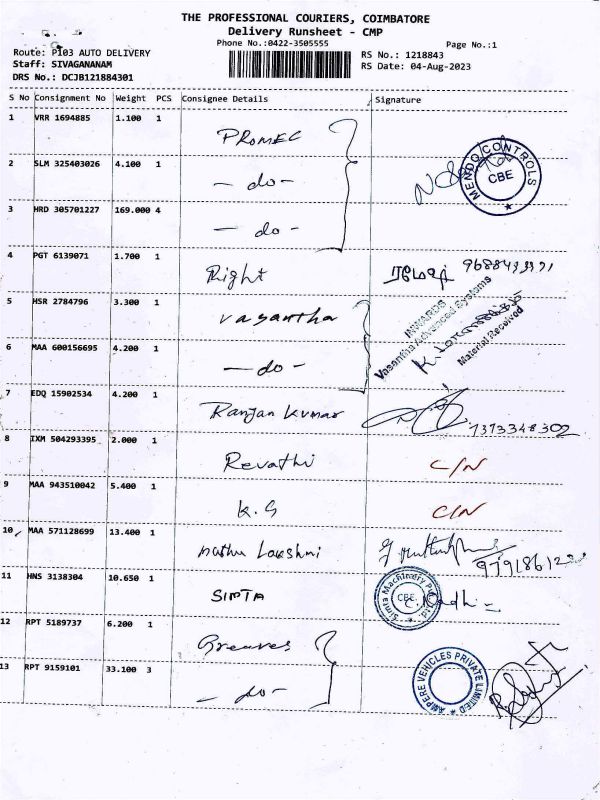 THE PROFESSIONAL COURIERS, COIMBATORE
Delivery Runsheet - CMP
Phone No.:0422-3505555
Page No.:1
Route: P103 AUTO DELIVERY
Staff: SIVAGANANAM
DRS No.: DCJB121884301
RS No.: 1218843
RS Date: 04-Aug-2023
S No Consignment No Weight PCS Consignee Details Signature
1 VRR 1694885 1.100 1 PROMEC
2 SLM 325403026 4.100 1 - do -
MENDO CONTROLS
CBE
3 HRD 305701227 169.000 4 - do -
4 PGT 6139071 1.700 1 Right
5 HSR 2784796 3.300 1 Vasantha
INWARDS
Vasantha Advanced Systems
Material Received
6 MAA 600156695 4.200 1 - do -
7 EDQ 15902534 4.200 1 Ranjan Kumar 7373348302
8 IXM 504293395 2.000 1 Revathi C/N
9 MAA 943510042 5.400 1 K.G C/N
10 MAA 571128699 13.400 1 Muthu Lakshmi
11 HNS 3138304 10.650 1 SIMTA
Simta Machinery P Ltd.
CBE.
12 RPT 5189737 6.200 1 Greaves
13 RPT 9159101 33.100 3 - do -
AMPERE VEHICLES PRIVATE LIMITED